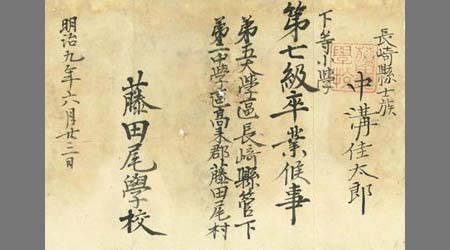 長崎縣士族
中溝佳太郎
下等小學
第七級卒業候事
第五大學區長崎縣管下
第一中學區高来郡藤田尾村
藤田尾學校
明治九年六月廿三日